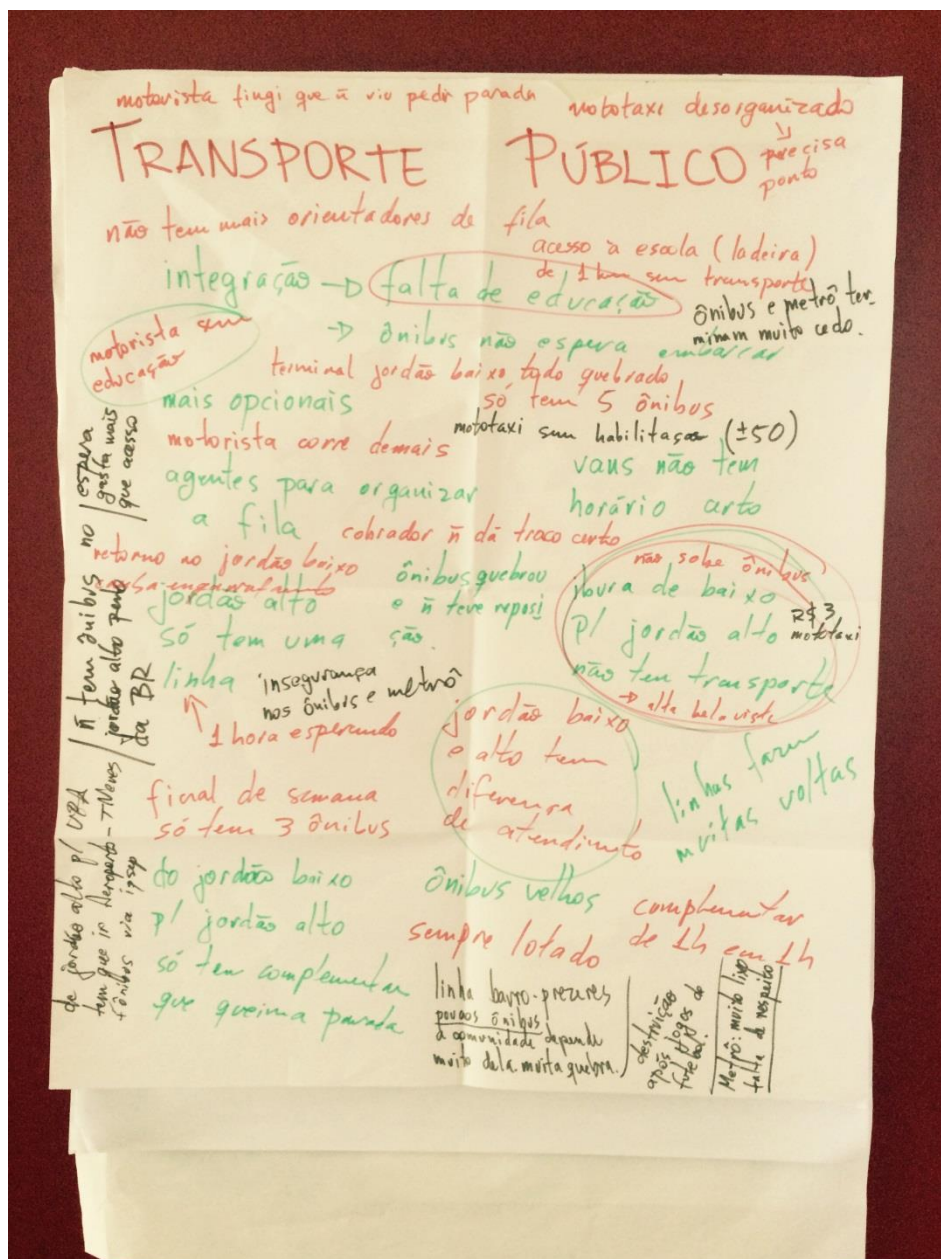 motorista fingi que ñ viu pedir parada
mototaxi desorganizado
precisa
ponto
TRANSPORTE PÚBLICO
não tem mais orientadores de fila
acesso à escola (ladeira)
de 1 km sem transporte
integração → falta de educação
ônibus e metrô ter-
minam muito cedo.
→ ônibus não espera embarcar
motorista sem
educação
terminal jordão baixo todo quebrado
mais opcionais
só tem 5 ônibus
motorista corre demais
mototaxi sem habilitação (±50)
agentes para organizar
a fila
vans não tem
horário certo
cobrador ñ dá troco certo
retorno no jordão baixo
jordão alto
só tem uma
linha
↑
1 hora esperando
ônibus quebrou
e ñ teve reposi
ção.
insegurança
nos ônibus e metrô
não sobe ônibus
ibura de baixo
p/ jordão alto
não tem transporte
R$ 3,
mototaxi
→ alta bela vista
jordão baixo
e alto tem
diferença
de atendimento
linhas fazem
muitas voltas
final de semana
só tem 3 ônibus
do jordão baixo
p/ jordão alto
só tem complementar
que queima parada
ônibus velhos
sempre lotado
complementar
de 1h em 1h
linha barro-prazeres
poucos ônibus
a comunidade depende
muito dela. muita quebra.
destruição
após jogos de
futebol
Metrô: muito lixo
falta de respeito
de jordão alto p/ UPA
tem que ir Aeroporto - TNeves
+ ônibus via
ñ tem ônibus no
jordão alto perto
da BR
espera
gasta mais
que acesso